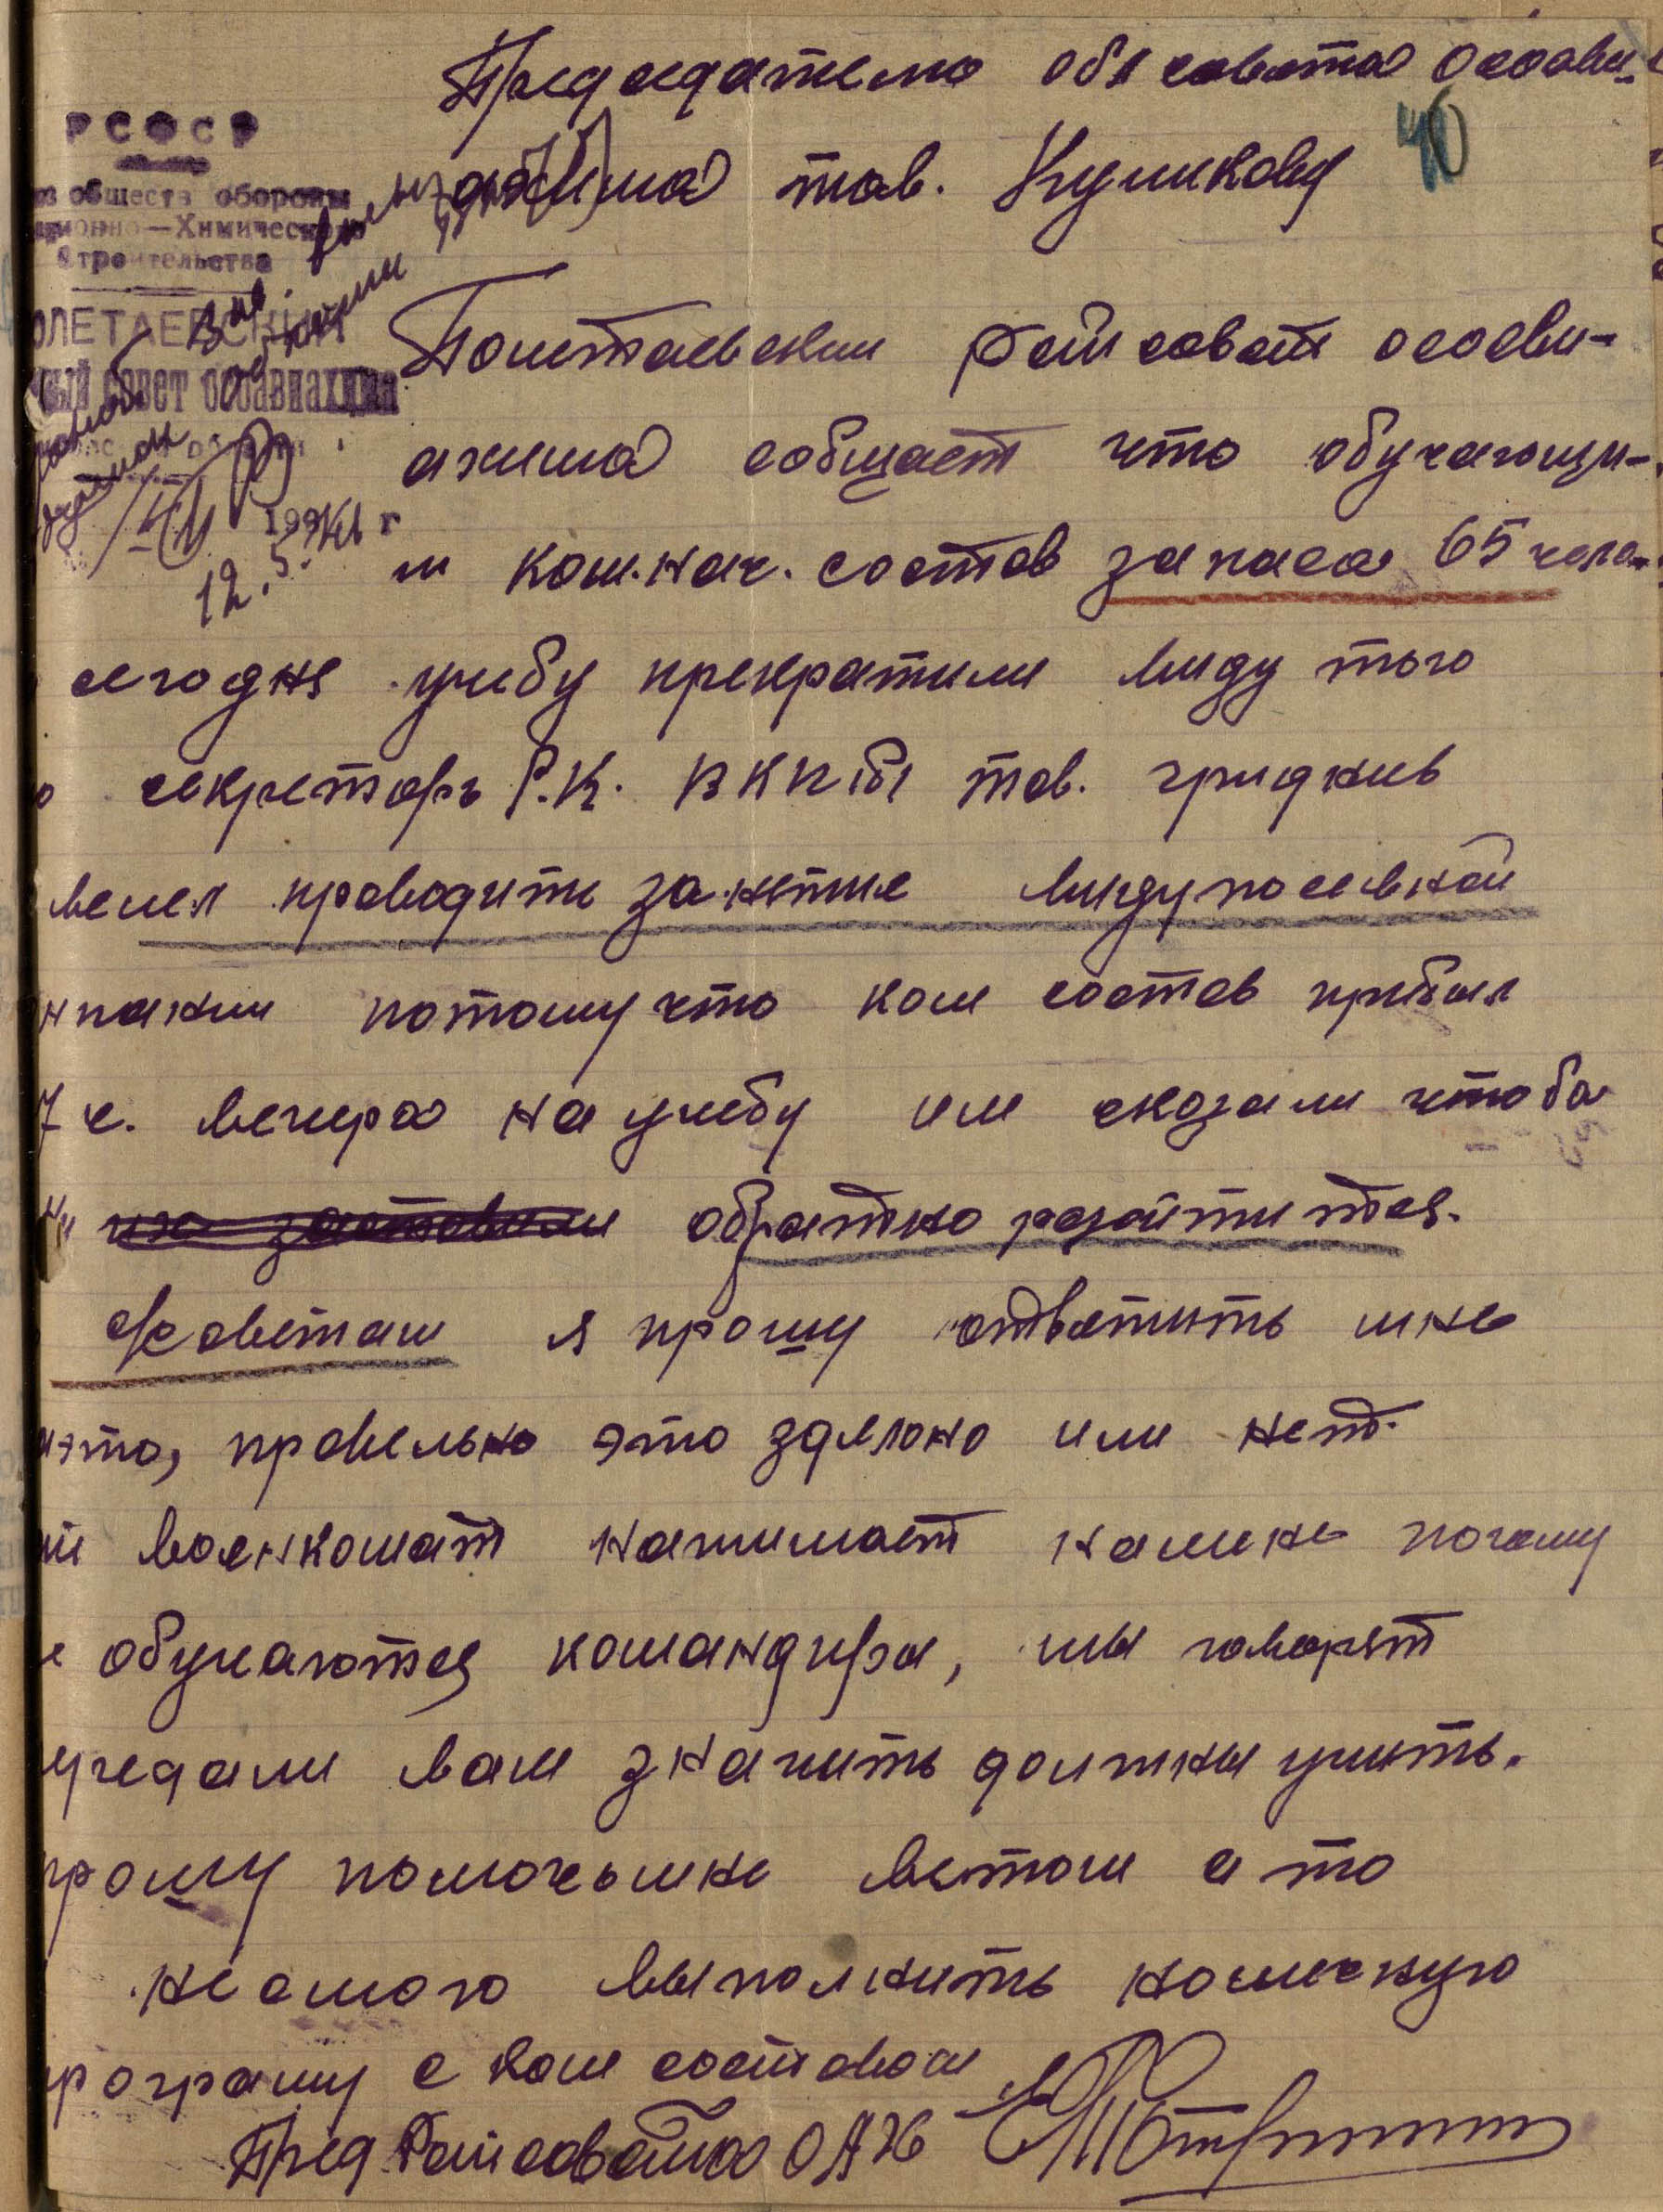 Председателю обл совета осоави-
ахима тов. Куликову
40
РСФСР
обществ обороны
ционно—Химического
Строительства
ОЛЕТАЕВСКИЙ
ный совет осоавиахима
12.5.
Полетаевский Рай совет осоави-
ахима собщает что обучающи-
й ком.нач. состав запаса 65 чело-
сегодня учебу прекратили виду того
секретарь Р.К. ВКПб тов. гриднев
велел проводить занятие виду посевной
мпании потому что ком состав прибыл
7 ч. вечера на учебу им сказали чтобы
их заставили обратно разойтится.
советам я прошу отдветить мне
это, правельно это зделоно или нет.
й военкомат нажимает намине почему
е обучаются командиры, мы говорят
ередали вам значить должны учить.
прошу помочь мне в етом а то
не смого выполнить намеченую
рограму с ком составом
Пред Райсовета ОАХ